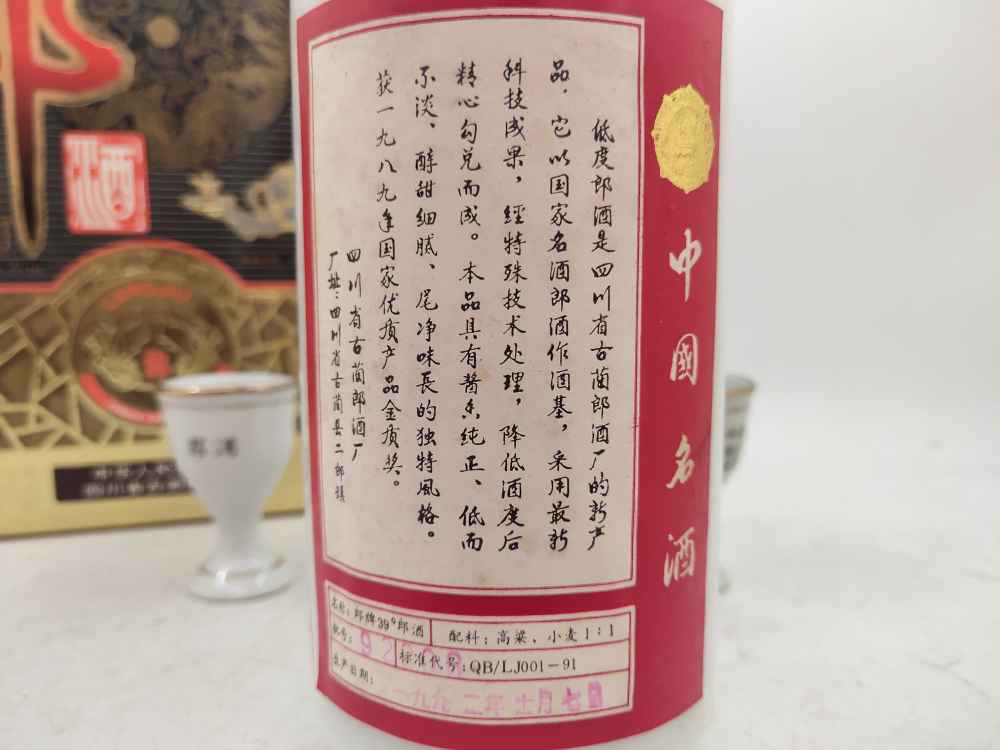 低度郎酒是四川省古蔺郎酒厂的新产
品。它以国家名酒郎酒作酒基，采用最新
科技成果，经特殊技术处理，降低酒度后
精心勾兑而成。本品具有酱香纯正、低而
不淡、醇甜细腻、尾净味長的独特风格。
获一九八九年国家优质产品金质奖。
四川省古蔺郎酒厂
厂址：四川省古蔺县二郎镇
中國名酒
名称：郎牌39°郎酒
配料：高粱、小麦1:1
批号：
标准代号：QB/LJ001-91
生产日期：
一九九二年十一月七日
酒
郎酒